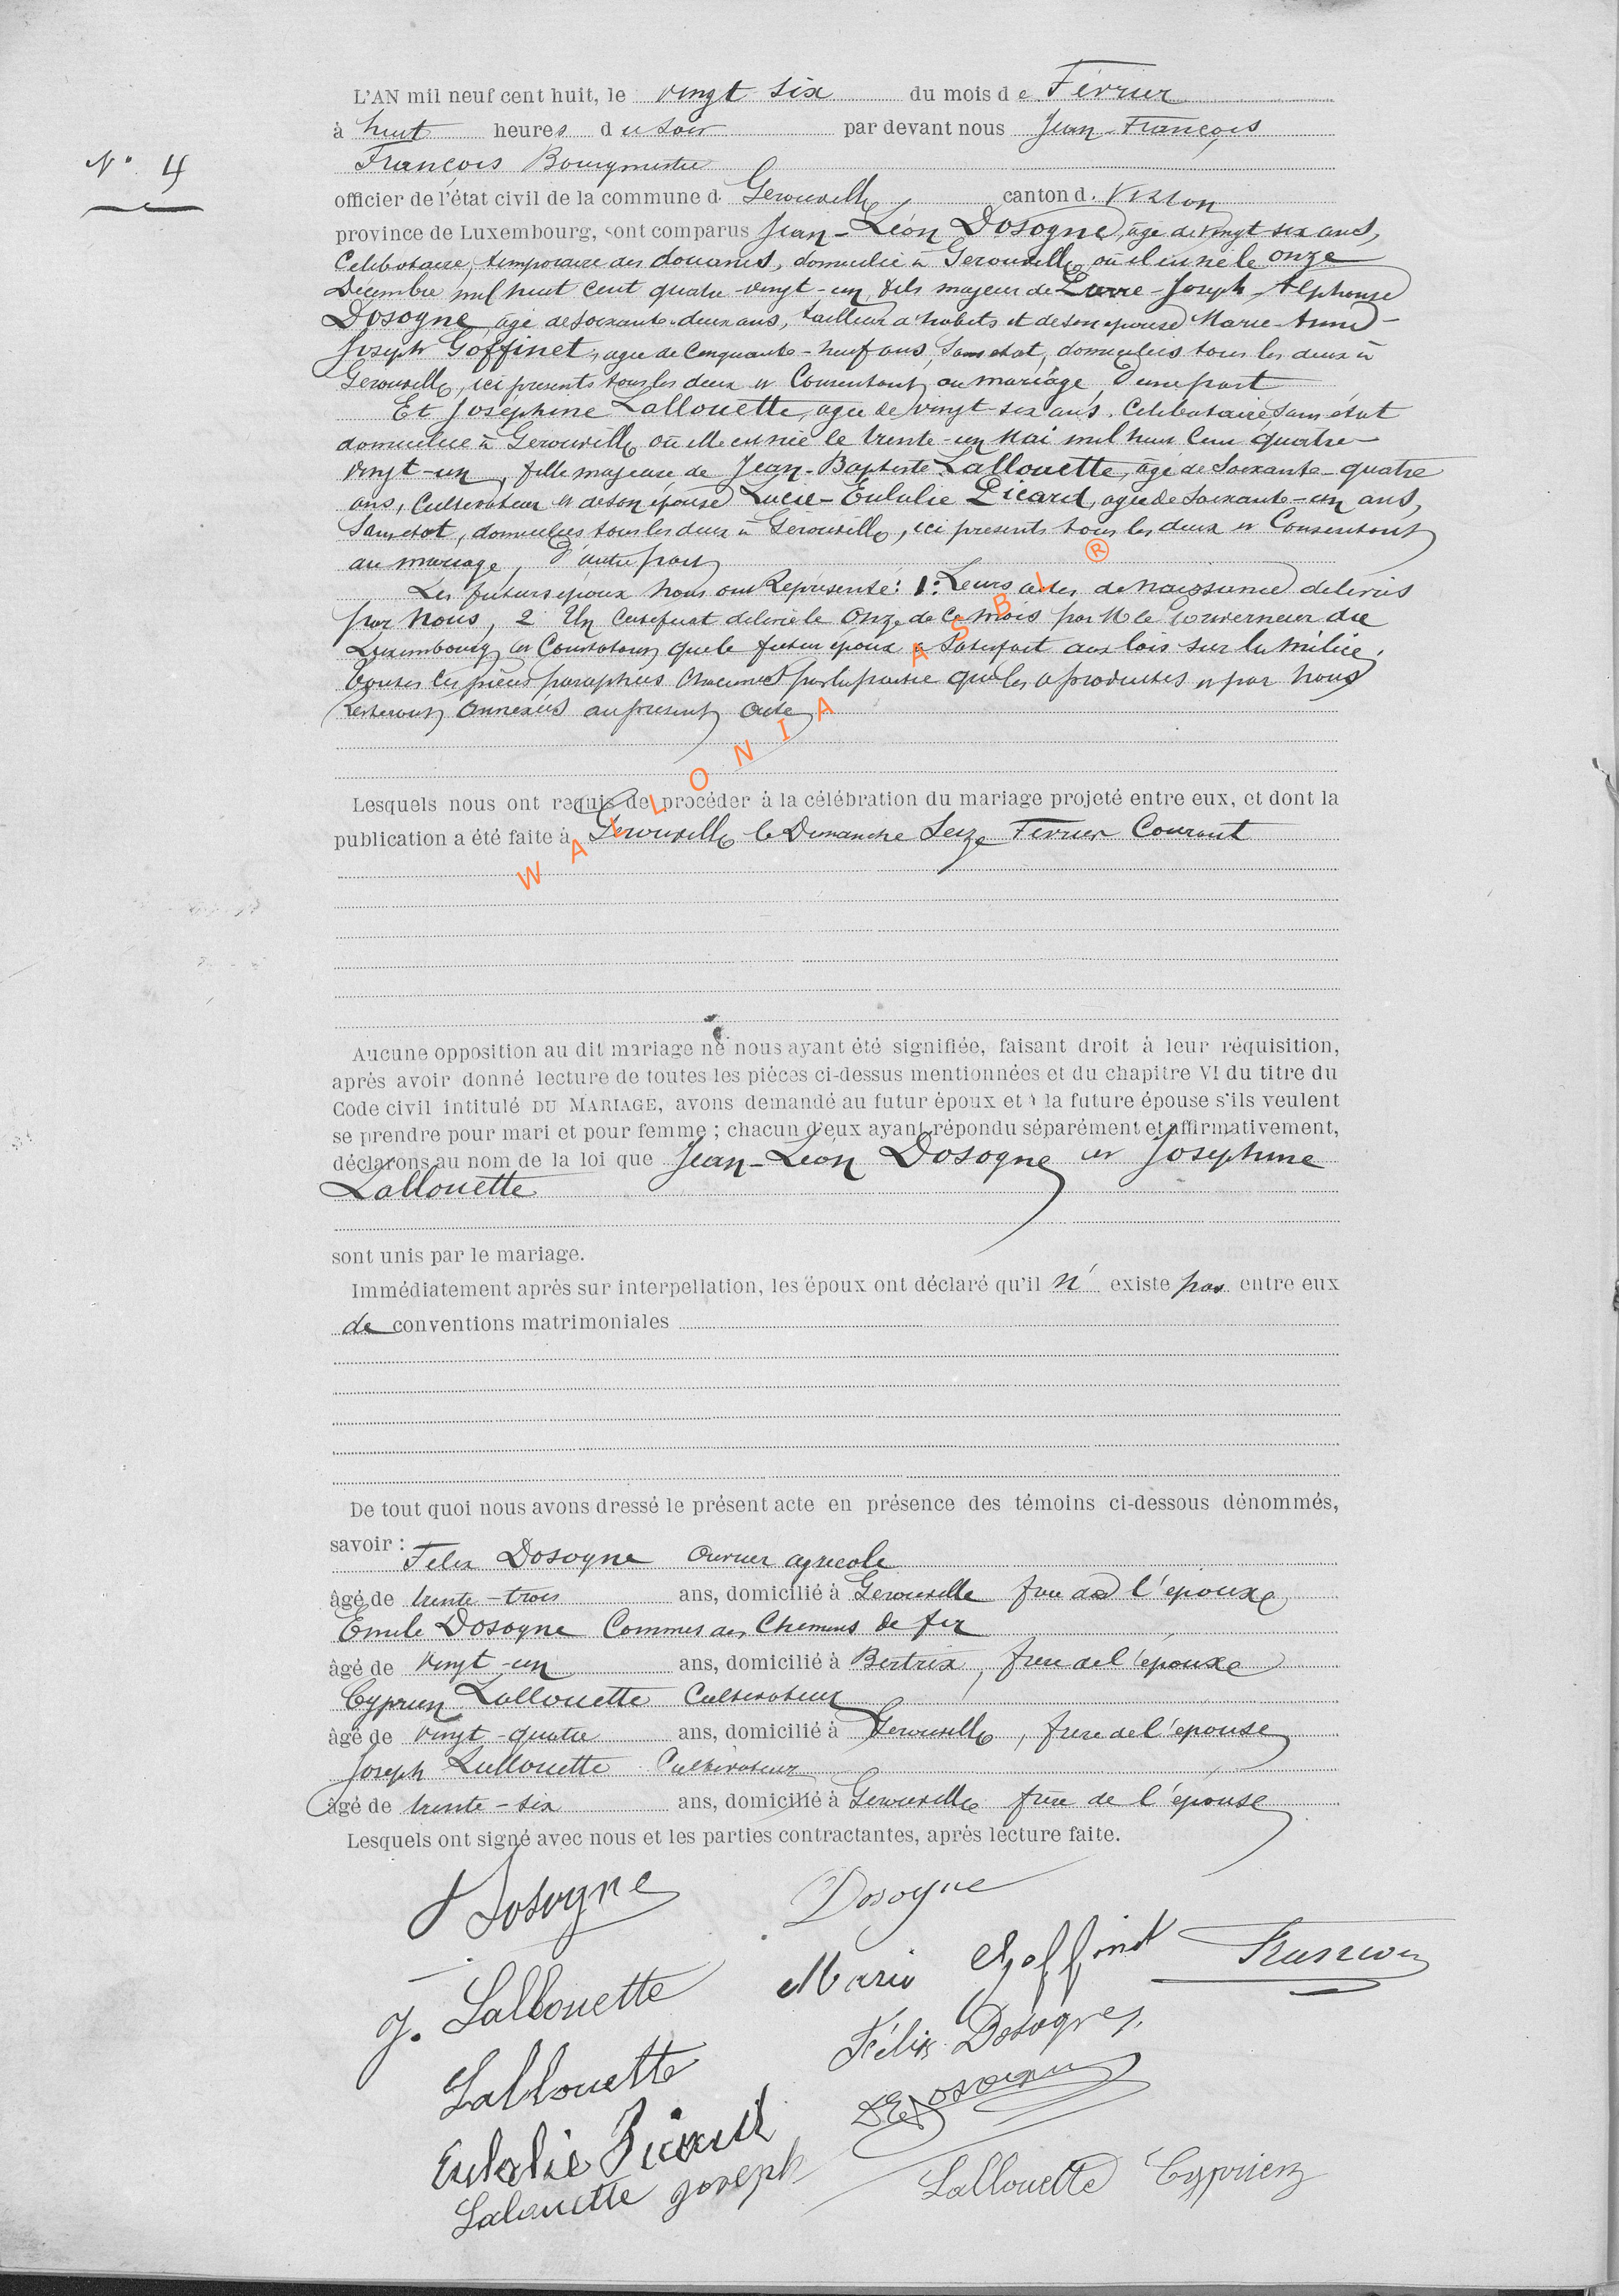 L'AN mil neuf cent huit, le vingt six du mois de Février
à huit heures du soir par devant nous Jean-François
N° 4
François Bourgmestre
officier de l'état civil de la commune d. Gerouville canton d. Virton
province de Luxembourg, sont comparus Jean-Léon Dosogne, âgé de vingt six ans,
Celibataire, temporaire des douanes, domicilié à Gerouville où il est né le onze
Decembre mil huit cent quatre-vingt-un, fils majeur de Pierre-Joseph-Alphonse
Dosogne âgé de soixante-deux ans, tailleur d'habits et de son épouse Marie-Anne-
Joseph Goffinet, agée de Cinquante-neuf ans, Sans etat, domiciliés tous les deux à
Gerouville, ici presents tous les deux et Consentant au mariage, d'une part
Et Joséphine Lallouette, agée de vingt-six ans. Celibataire, sans état
domiciliée à Gerouville où elle est née le trente-un Mai mil huit Cent quatre-
vingt-un, fille majeure de Jean-Baptiste Lallouette, âgé de Soixante-quatre
ans, Cultivateur et de son épouse Lucie-Eululie Picard, agée de soixante-un ans,
Sans etat, domiciliés tous les deux à Gerouville, ici presents tous les deux et Consentant
au mariage, d'autre part
Les futurs époux nous ont Représenté: 1° Leurs actes de naissance delivrés
par nous, 2 Un Certificat delivré le Onze de ce mois par M le Gouverneur du
Luxembourg et Constatant que le futur époux a Satisfait aux lois sur la milice.
Toutes ces pièces paraphées Chacune par la partie qui les a produites et par nous
resteront annexées au present acte
WALLONIA ASBL ®
Lesquels nous ont requis de procéder à la célébration du mariage projeté entre eux, et dont la
publication a été faite à Gerouville le Dimanche Seize Février Courant
Aucune opposition au dit mariage ne nous ayant été signifiée, faisant droit à leur réquisition,
après avoir donné lecture de toutes les pièces ci-dessus mentionnées et du chapitre VI du titre du
Code civil intitulé DU MARIAGE, avons demandé au futur époux et à la future épouse s'ils veulent
se prendre pour mari et pour femme ; chacun d'eux ayant répondu séparément et affirmativement,
déclarons au nom de la loi que Jean-Léon Dosogne et Josephine
Lallouette
sont unis par le mariage.
Immédiatement après sur interpellation, les époux ont déclaré qu'il n' existe pas entre eux
de conventions matrimoniales
De tout quoi nous avons dressé le présent acte en présence des témoins ci-dessous dénommés,
savoir :
Felix Dosogne Ouvrier agricole
âgé de trente-trois ans, domicilié à Gerouville frere de l'époux
Emile Dosogne Commis des Chemins de fer
âgé de vingt-un ans, domicilié à Bertrix, frere de l'époux
Cyprien Lallouette Cultivateur
âgé de vingt-quatre ans, domicilié à Gerouville, frere de l'épouse
Joseph Lallouette Cultivateur
âgé de trente-six ans, domicilié à Gerouville frère de l'épouse
Lesquels ont signé avec nous et les parties contractantes, après lecture faite.
Dosogne Dosogne
J. Lallouette Marie Goffinet François
Lallouette Félix Dosogne
Eulalie Picard Dosogne
Lalouette joseph Lallouette Cyprien